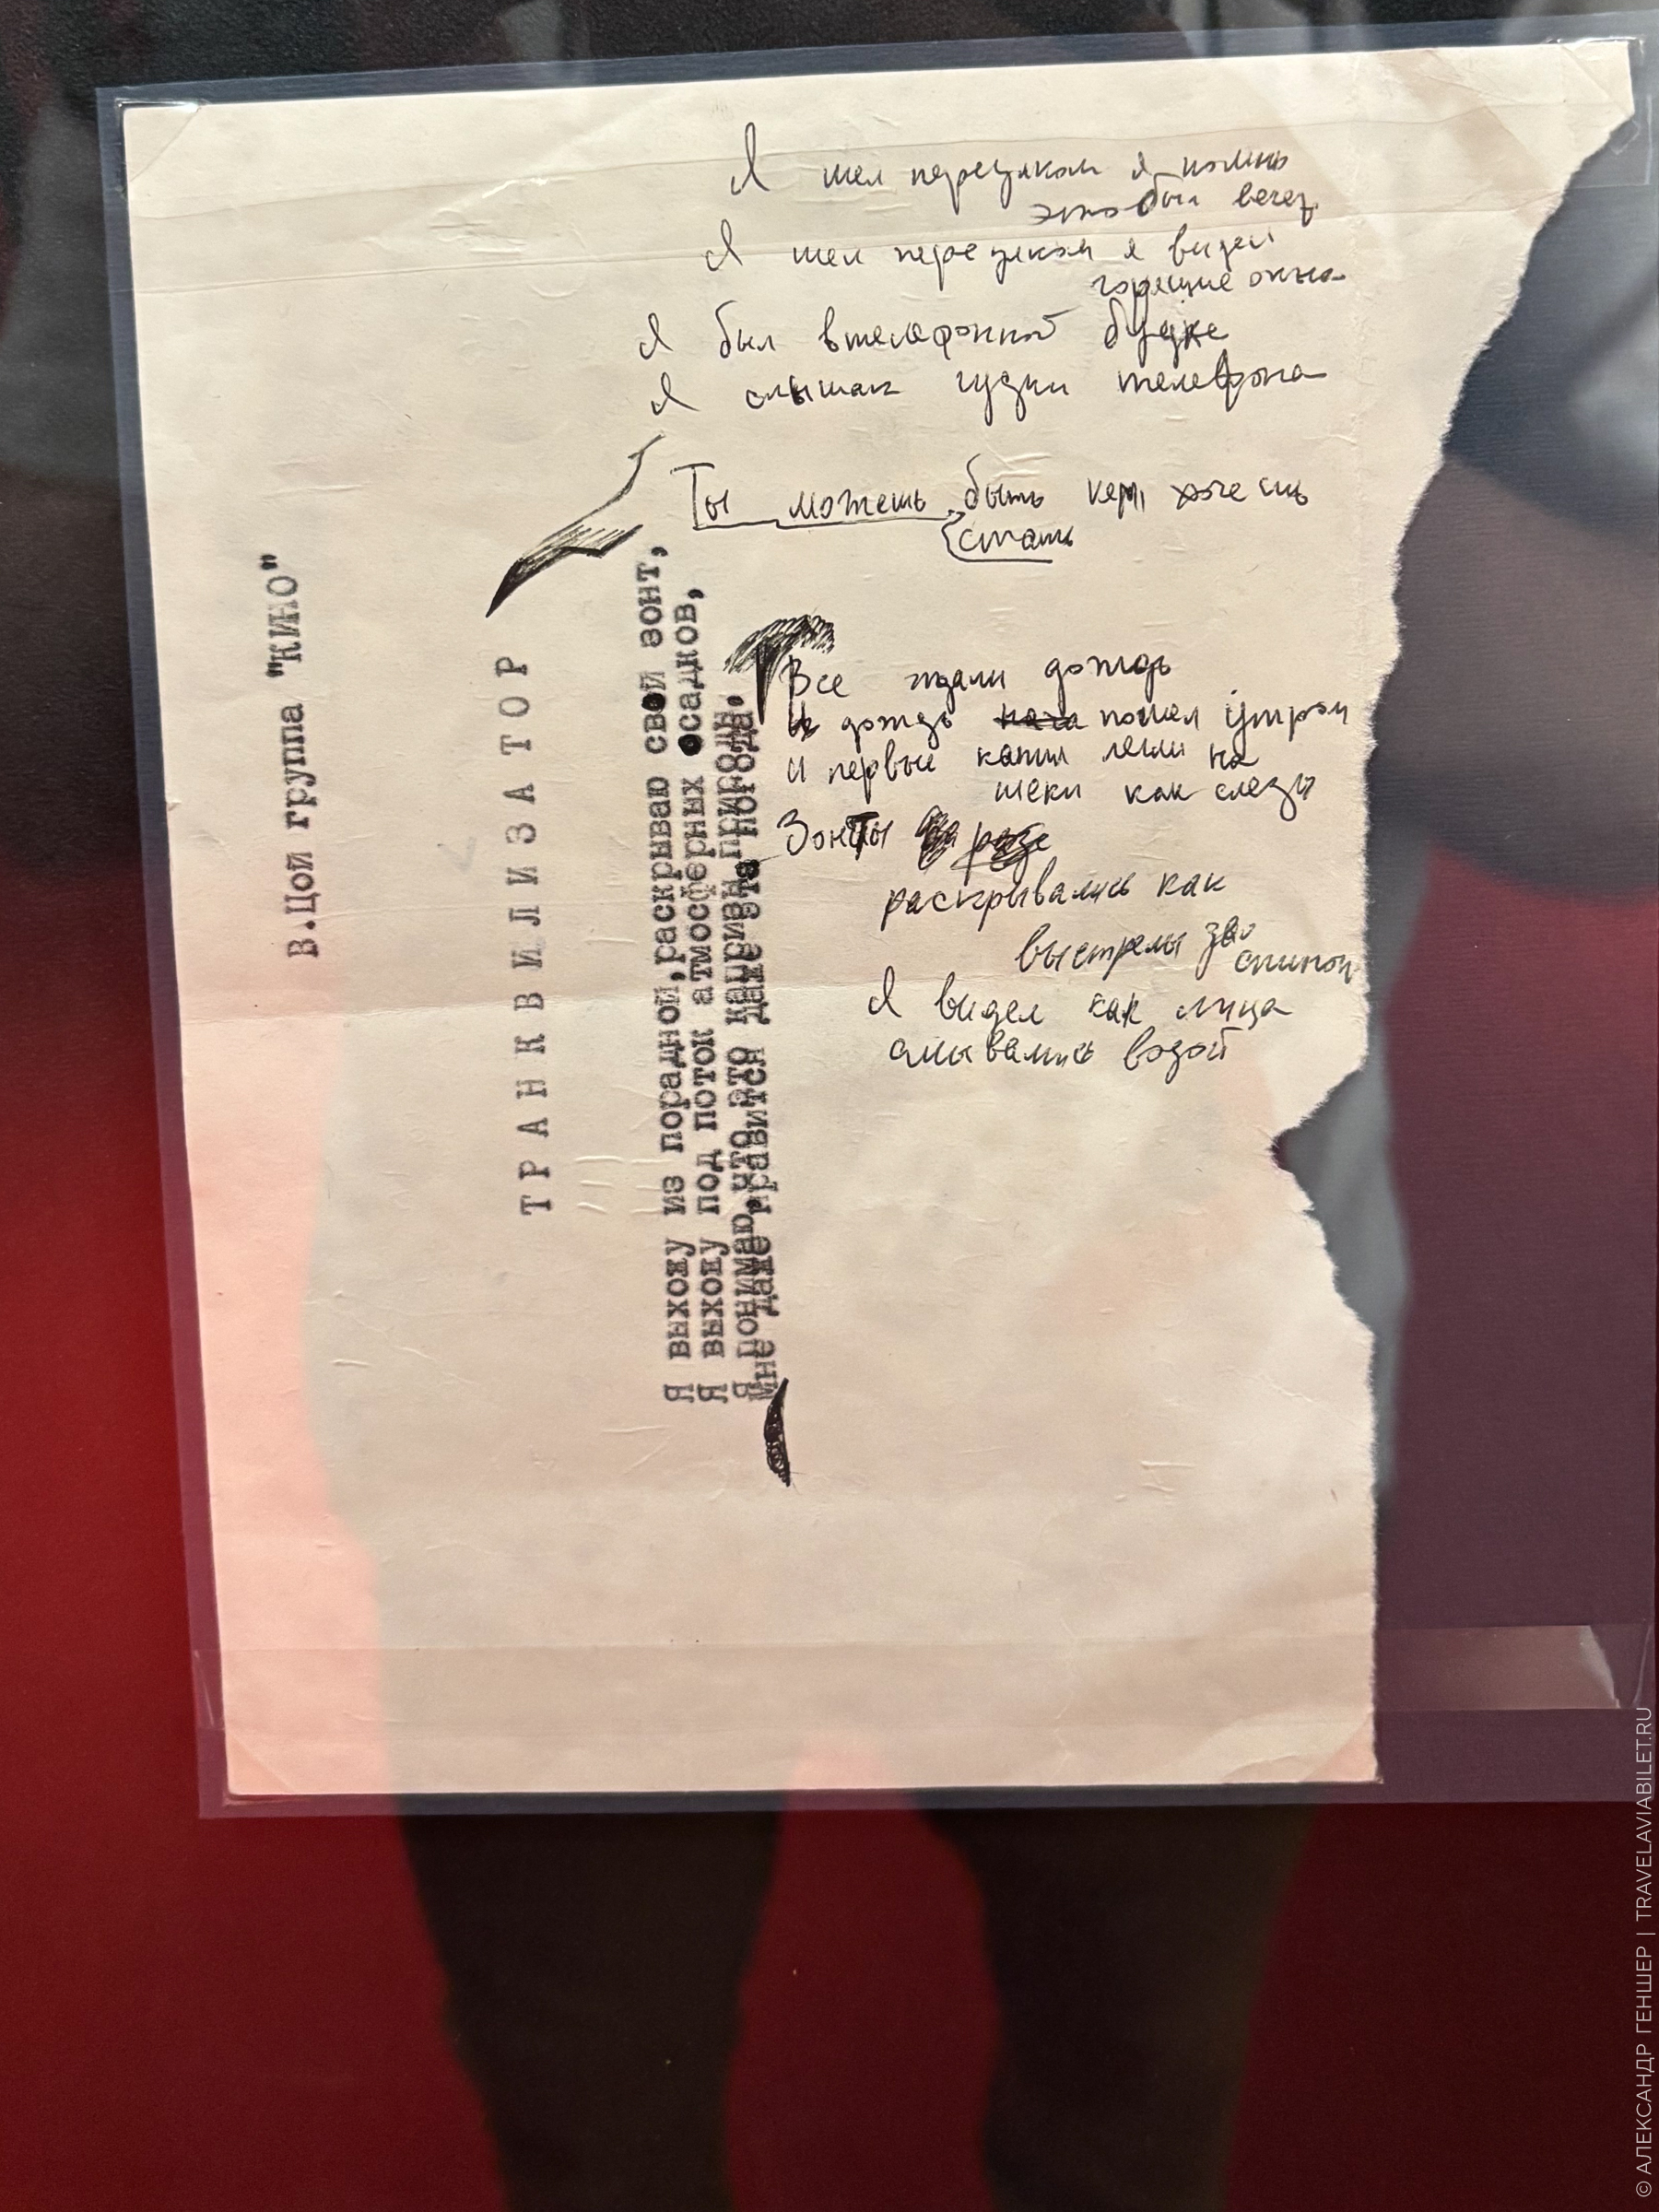 Я шел переулком я помню
это был вечер.
Я шел переулком я видел
горящие окна
Я был в телефонной будке
Я слышал гудки телефона
Ты можешь быть кем хочешь
стать
Все ждали дождь
И дождь пошел утром
И первые капли легли на
щеки как слезы
Зонты
раскрывались как
выстрелы за
спиной
Я видел как лица
смывались водой
В.Цой группа "КИНО"
Т Р А Н К В И Л И З А Т О Р
Я выхожу из порадной,раскрываю свой зонт,
Я выхожу под поток атмосферных осадков,
Я понимаю,что это капризы природы.
Мне даже нравится даже эта погода.
© АЛЕКСАНДР ГЕНШЕР | TRAVELAVIABILET.RU